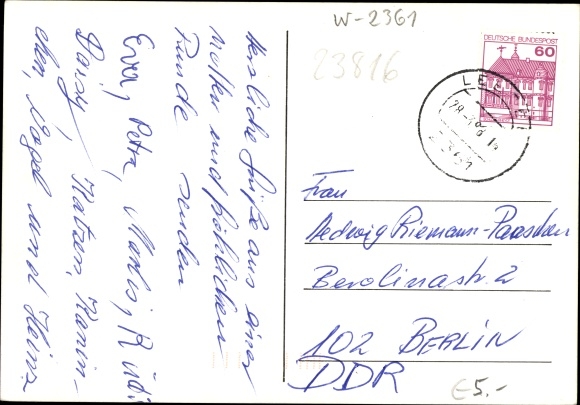 W-2361
23816
DEUTSCHE BUNDESPOST
60
Herzliche Grüße aus einer
netten und fröhlichen
Runde senden
Eva, Petra, Marlis, Rüdi
Daisy, Katzen, Kanin-
chen, Vögel und Heinz
Frau
Hedwig Riemann-Paaschen
Berolinastr. 2
102 BERLIN
DDR
€5.-